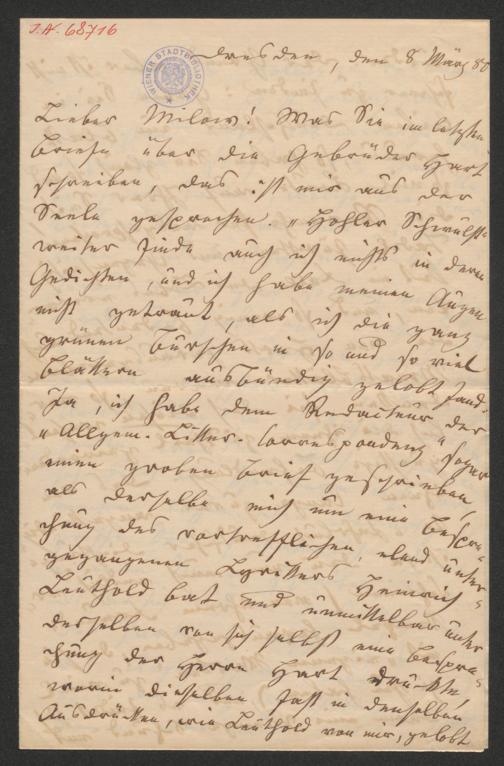 I.N. 68716
WIENER STADTBIBLIOTHEK
Dresden, den 8 März 80
Lieber Milow! Was Sie im letzten
Briefe über die Gebrüder Hart
schreiben, das ist mir aus der
Seele gesprochen. "Hohler Schwulst"
weiter finde auch ich nichts in deren
Gedichten, und ich habe meinen Augen
nicht getraut, als ich die ganz
grünen Burschen in so und so viel
Blättern ausbündig gelobt fand.
Ja, ich habe dem Redacteur der
"Allgem. Litter. Correspondenz" sogar
einen groben Brief geschrieben,
als derselbe mich um eine Bespre-
chung des vortrefflichen, elend unter-
gegangenen Lyrikers Heinrich
Leuthold bat und unmittelbar unter
derselben von sich selbst eine Bespre-
chung der Herrn Hart druckte,
worin dieselben fast in denselben
Ausdrücken, wie Leuthold von mir, gelobt